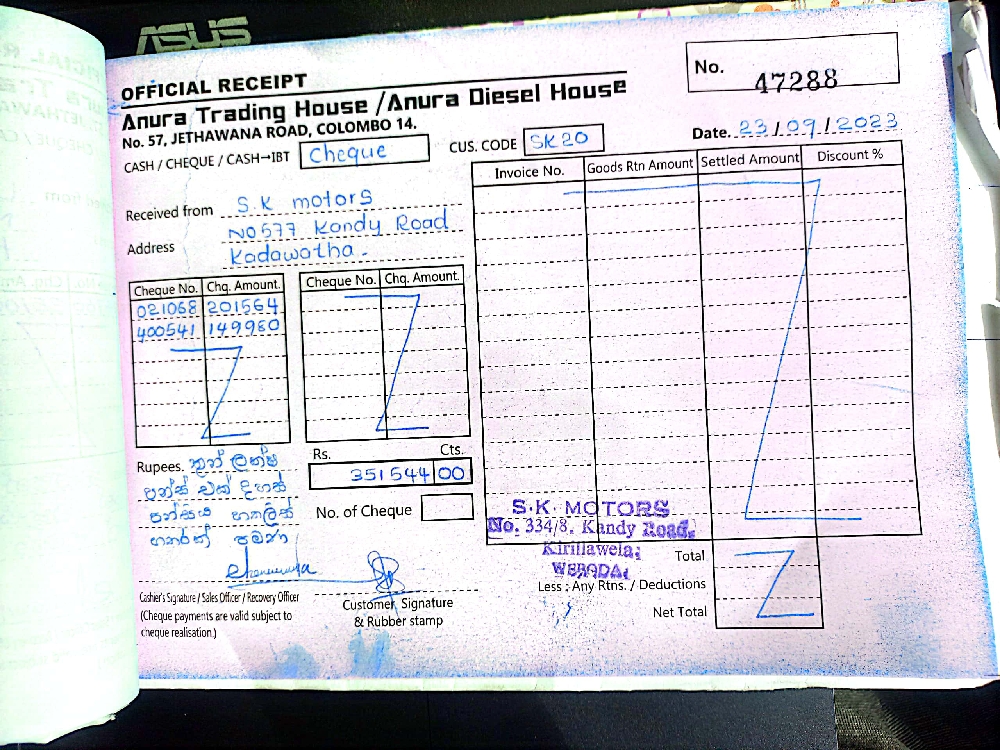 ASUS
OFFICIAL RECEIPT
No. 47288
Anura Trading House / Anura Diesel House
No. 57, JETHAWANA ROAD, COLOMBO 14.
Date. 23/09/2023
CASH / CHEQUE / CASH→IBT Cheque
CUS. CODE SK20
Invoice No. Goods Rtn Amount Settled Amount Discount %
Received from S.K motors
Address No 577 Kandy Road
Kadawatha.
Cheque No. Chq. Amount. Cheque No. Chq. Amount.
021068 201564
400541 149980
Rupees. තුන් ලක්ෂ
පනස් එක් දහස්
පන්සිය හතලිස්
හතරක් පමණි
Rs. Cts.
351544 00
No. of Cheque
S.K. MOTORS
No. 334/8, Kandy Road,
Kirillawela,
WEBODA.
Total
Less : Any Rtns. / Deductions
Net Total
Cashier's Signature / Sales Officer / Recovery Officer
(Cheque payments are valid subject to
cheque realisation.)
Customer Signature
& Rubber stamp